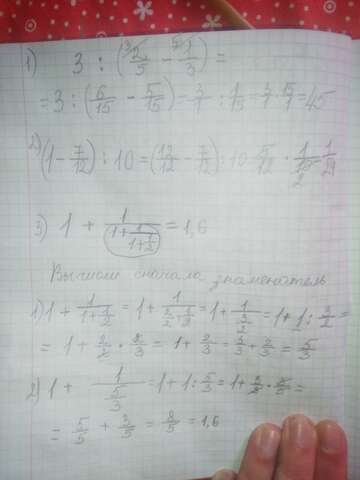 1) 3 : (2/5 - 1/3) =
= 3 : (6/15 - 5/15) = 3/1 : 1/15 = 3/1 · 15/1 = 45
2) (1 - 7/12) : 10 = (12/12 - 7/12) : 10 = 5/12 · 1/10 = 1/24
3) 1 + 1/(1+1/(1+1/2)) = 1,6
Вычисли сначала знаменатель
1) 1 + 1/(1+1/2) = 1 + 1/(2/2+1/2) = 1 + 1/(3/2) = 1 + 1 : 3/2 =
= 1 + 1/1 · 2/3 = 1 + 2/3 = 3/3 + 2/3 = 5/3
2) 1 + 1/(5/3) = 1 + 1 : 5/3 = 1 + 3/5 =
= 5/5 + 3/5 = 8/5 = 1,6